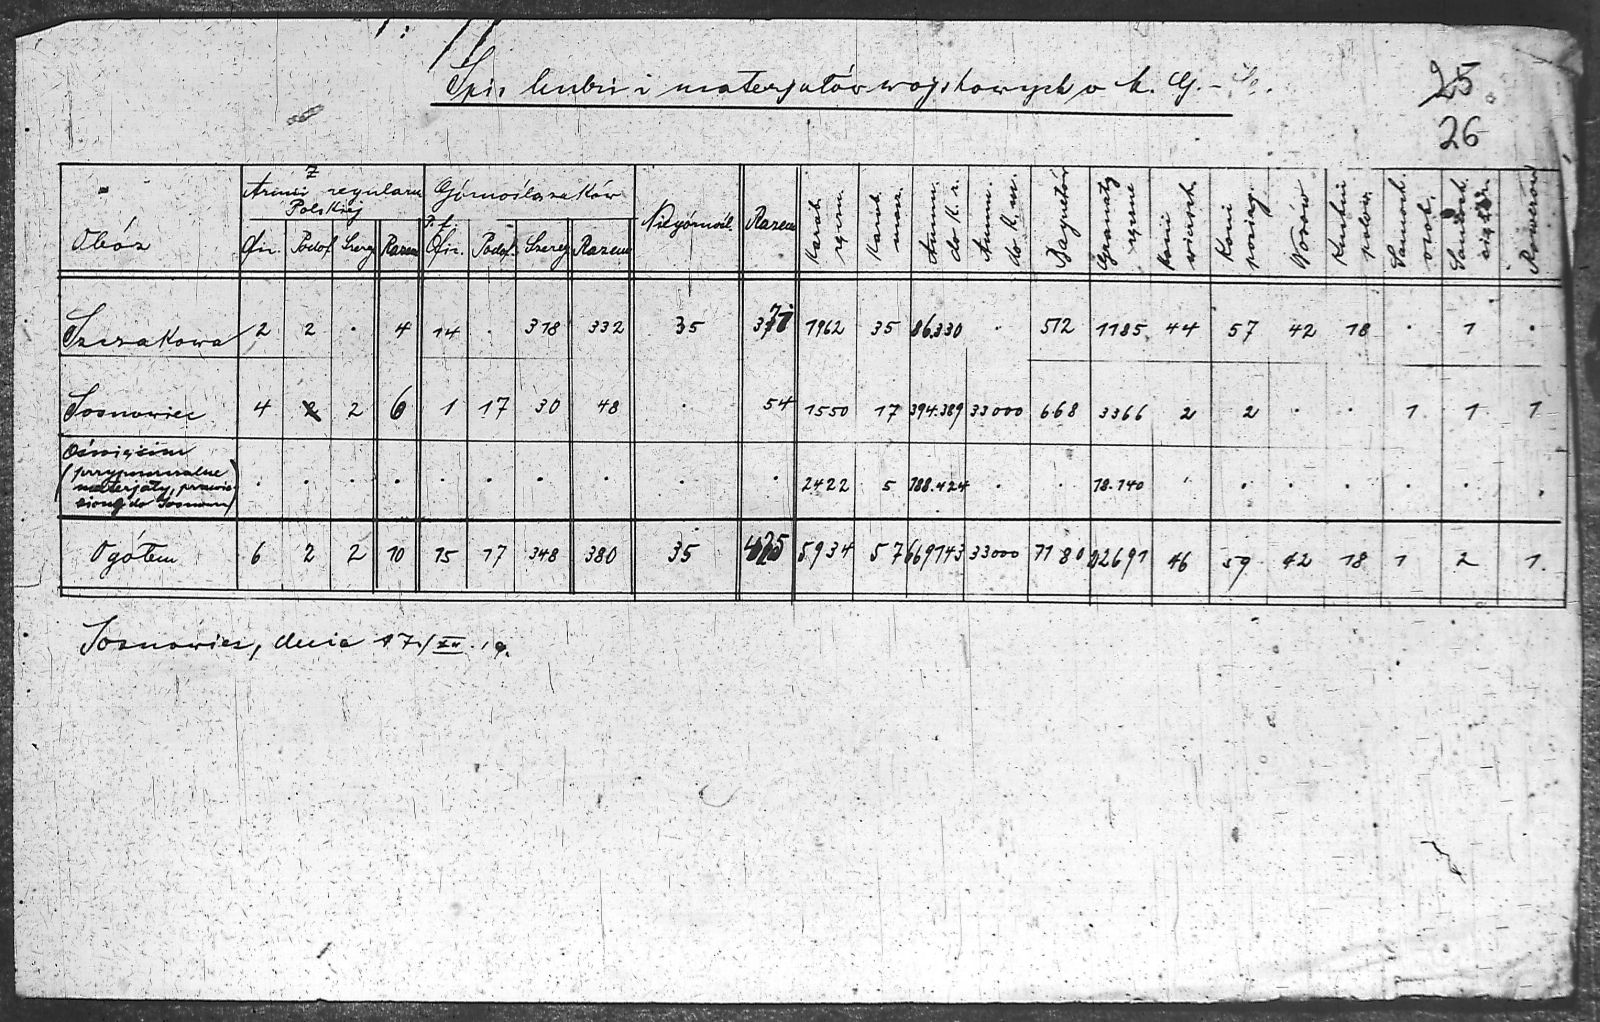 Spis ludzi i materjałów wojskowych o k. G.-Śl.
25.
26
Obóz
Z Armii regularn. Polskiej
Górnoślązaków
Niegórnośl.
Razem
Ofic. Podof. Szereg Razem Ofic. Podof. Szereg Razem
Karab. ręczn.
Karab. masz.
Amun. do K. r.
Amun. do K. m.
Bagnetów
Granaty ręczne
Koni wierzch.
Koni pociąg.
Wozów
Kuchni polow.
Samoch. osob.
Samoch. cięż.
Rowerów
Szczakowa 2 2 . 4 14 . 318 332 35 371 1962 35 86.330 . 512 1185 44 57 42 18 . 1 .
Sosnowiec 4 2 6 1 17 30 48 . 54 1550 17 394.389 33000 668 3366 2 2 . . 1 1 1
Oświęcim
(przypuszczalne
materjały, przewie-
zione do Sosnow.)
. . . . . . . . . . 2422 5 188.424 . . 18.140 . . . . . . .
Ogółem 6 2 2 10 15 17 348 380 35 425 5934 57 669143 33000 1180 22691 46 59 42 18 1 2 1.
Sosnowiec, dnia 17./XII.19.